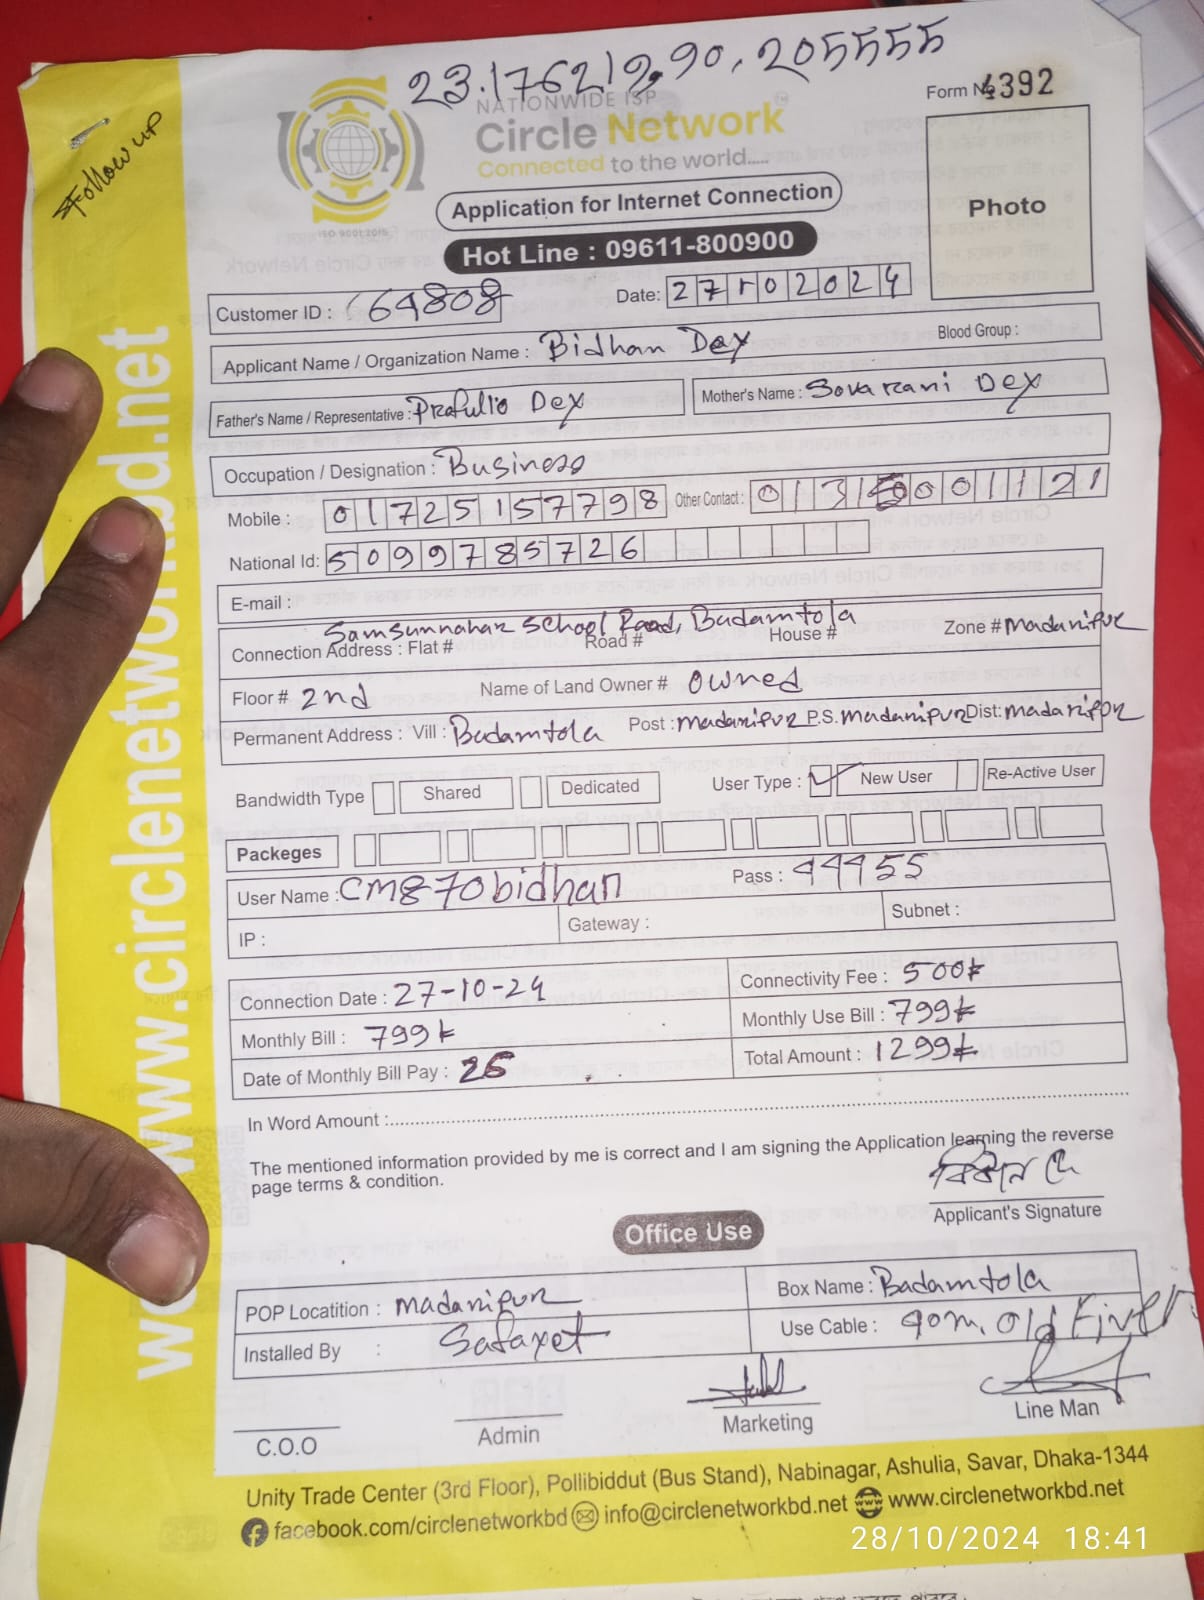 23.176219, 90.205555
Form № 4392
*Follow up
NATIONWIDE ISP
Circle Network™
Connected to the world.....
ISO 9001:2015
Application for Internet Connection
Photo
Hot Line : 09611-800900
Customer ID : 64808 Date: 27102024
Applicant Name / Organization Name : Bidhan Dey Blood Group :
Father's Name / Representative : Prafullo Dey Mother's Name : Sovarani Dey
Occupation / Designation : Business
Mobile : 01725157798 Other Contact : 013150001121
National Id: 5099785726
E-mail :
Samsunnahar School Road, Badamtola
Connection Address : Flat # Road # House # Zone # Madaripur
Floor # 2nd Name of Land Owner # Owned
Permanent Address : Vill : Badamtola Post : Madaripur P.S. Madaripur Dist: Madaripur
Bandwidth Type Shared Dedicated User Type : ✓ New User Re-Active User
Packeges
User Name : CM870bidhan Pass : 44455
IP : Gateway : Subnet :
Connection Date : 27-10-24 Connectivity Fee : 500৳
Monthly Bill : 799৳ Monthly Use Bill : 799৳
Date of Monthly Bill Pay : 26 Total Amount : 1299৳
In Word Amount :
The mentioned information provided by me is correct and I am signing the Application learning the reverse
page terms & condition.
বিধান দে
Applicant's Signature
Office Use
POP Locatition : Madaripur Box Name : Badamtola
Installed By : Safayet Use Cable : 90m, Old Fiver
C.O.O Admin Marketing Line Man
Unity Trade Center (3rd Floor), Pollibiddut (Bus Stand), Nabinagar, Ashulia, Savar, Dhaka-1344
facebook.com/circlenetworkbd info@circlenetworkbd.net www.circlenetworkbd.net
www.circlenetworkbd.net
28/10/2024 18:41